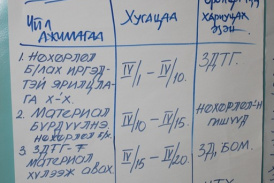 Үйл Хугацаа
ажиллагаа хариуцах
эзэн
1. Нөхөрлөл
б/лах иргэд- IV/1 – IV/10. ЗДТГ.
тэй ярилцла-
га х-х.
2. Материал IV/10 – IV/15. Нөхөрлөл-н
бүрдүүлнэ. гишүүд
нөхөрлөл б/х.
3. ЗДТГ-т IV/15 – IV/20. ЗД, БОМ.
материал
хүлээж авах.